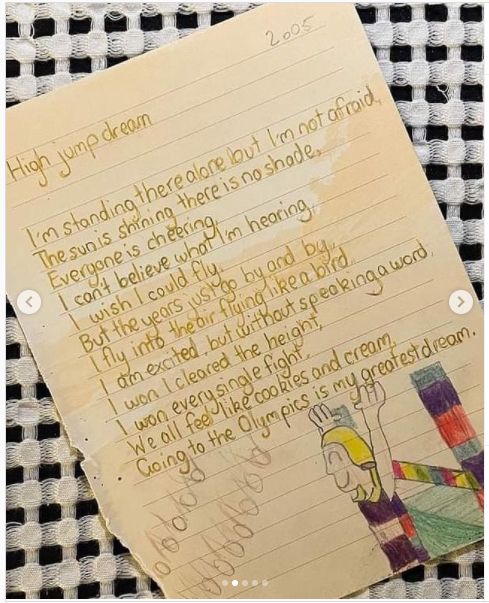 2005
High jump dream
I'm standing there alone but I'm not afraid,
The sun is shining there is no shade.
Everyone is cheering,
I can't believe what I'm hearing.
I wish I could fly,
But the years just go by and by.
I fly into the air flying like a bird,
I am excited, but without speaking a word.
I won I cleared the height,
I won every single fight.
We all feel like cookies and cream,
Going to the Olympics is my greatest dream.